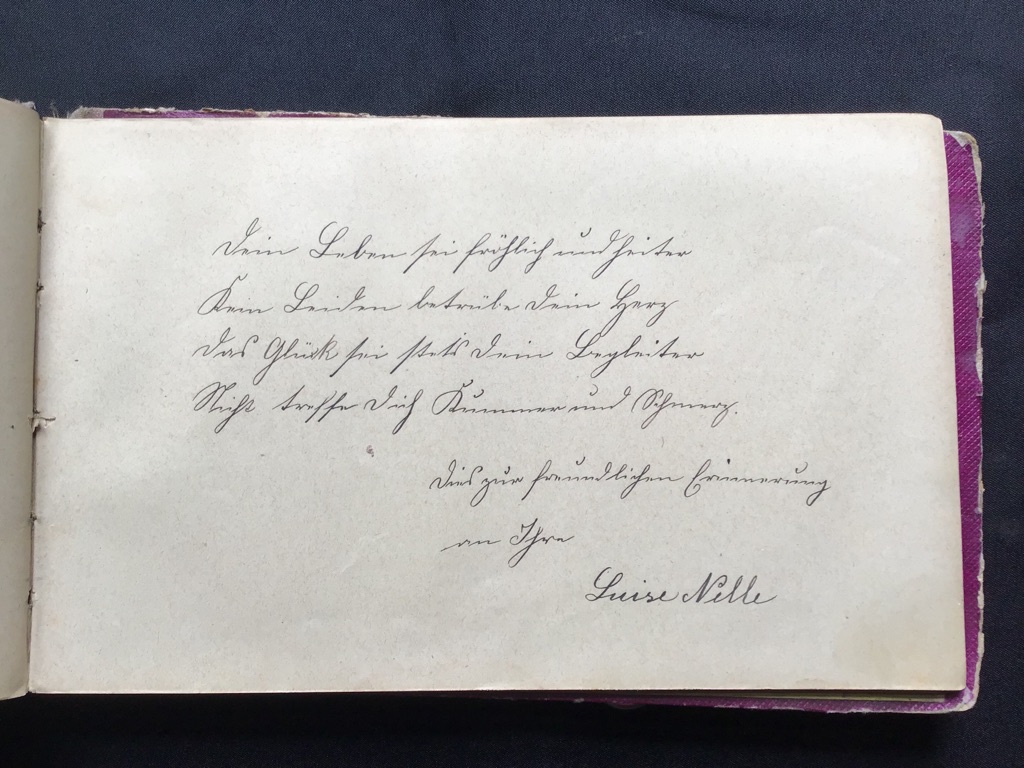 Dein Leben sei fröhlich und heiter
Kein Leiden betrübe Dein Herz
Das Glück sei stets Dein Begleiter
Nicht treffe Dich Kummer und Schmerz.
Dies zur freundlichen Erinnerung
an Ihre
Luise Nelle